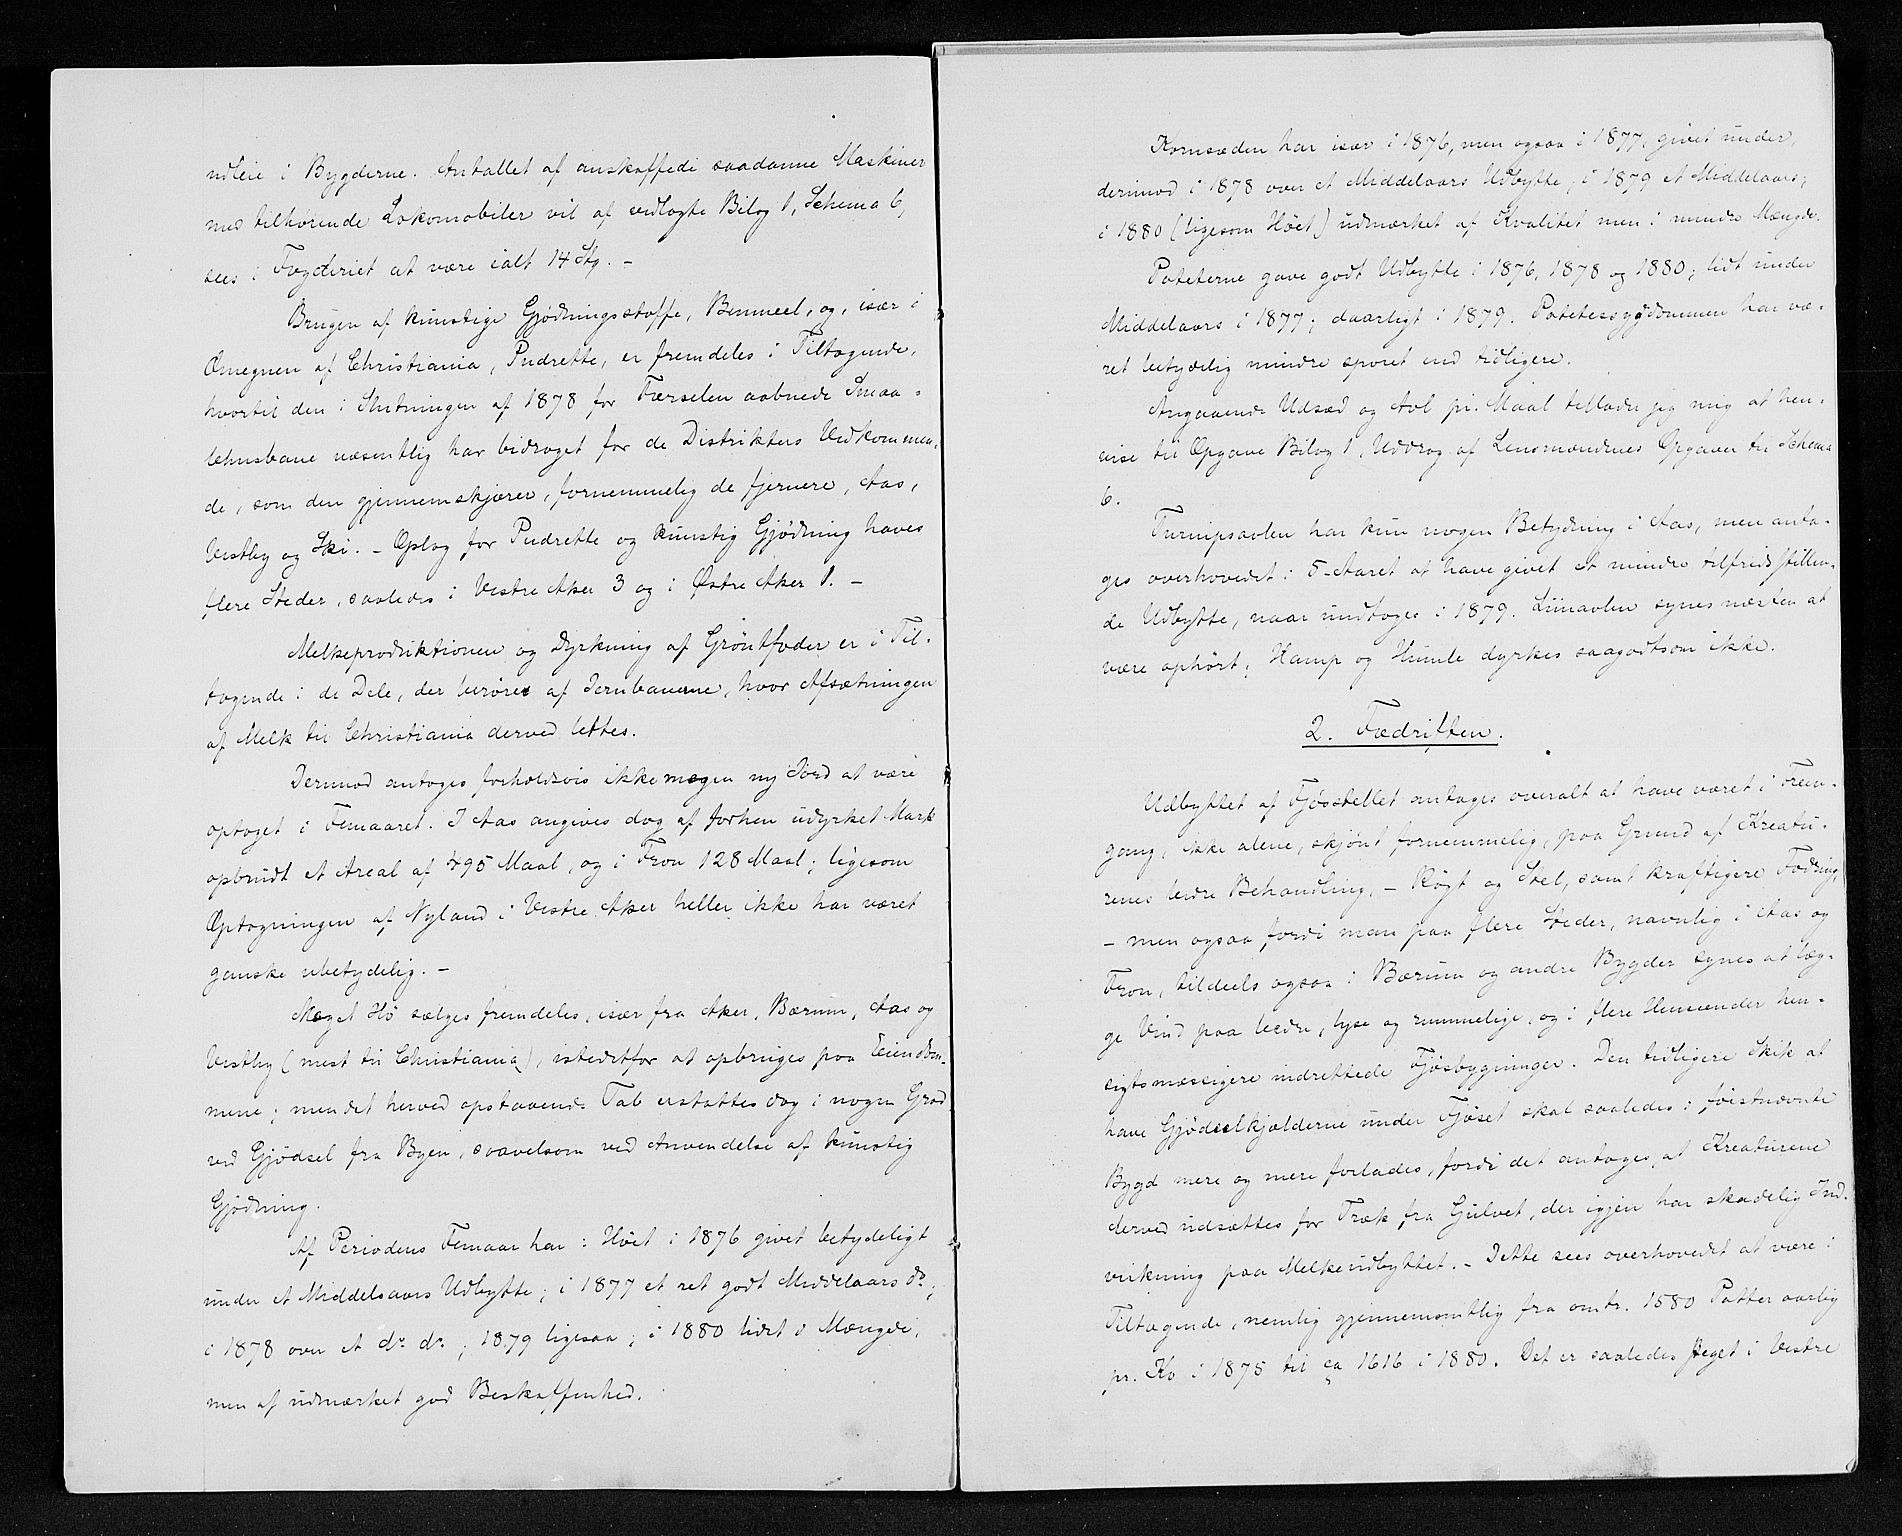 udleie i Bygderne. Antallet af anskaffede saadanne Maskiner
med tilhørende Lokomobiler vil af vedlagte Bilag 1, Schema 6,
sees i Fogderiet at være ialt 14 Stg. –
Brugen af kunstige Gjødningsstoffe, Benmeel, og, især i
Omegnen af Christiania, Pudrette, er fremdeles i Tiltagende,
hvortil den i Slutningen af 1878 for Færselen aabnede Smaa-
lehnsbane væsentlig har bidraget for de Distrikters Vedkommen-
de, som den gjennemskjærer, fornemmelig de fjernere, Aas,
Vestby og Ski. – Oplag for Pudrette og kunstig Gjødning haves
flere Steder, saaledes i Vestre Aker 3 og i Østre Aker 1. –
Melkeproduktionen og Dyrkning af Grøntfoder er i Til-
tagende i de Dele, der berøres af Jernbanerne, hvor Afsætningen
af Melk til Christiania derved lettes.
Derimod antages forholdsvis ikke megen ny Jord at være
optaget i Femaaret. I Aas angives dog af forhen udyrket Mark
opbrudt et Areal af 495 Maal, og i Fron 128 Maal; ligesom
Optagningen af Nyland i Vestre Aker heller ikke har været
ganske ubetydelig. –
Meget Hø sælges fremdeles, især fra Aker, Bærum, Aas og
Vestby (mest til Christiania), istedetfor at opbruges paa Eiendom-
mene; men det herved opstaaende Tab erstattes dog i nogen Grad
ved Gjødsel fra Byen, saavelsom ved Anvendelse af kunstig
Gjødning.
Af Periodens Femaar har: Høet i 1876 givet betydeligt
under et Middelsaars Udbytte; i 1877 et ret godt Middelaars do;
i 1878 over et do do; 1879 ligesaa; i 1880 lidet i Mængde,
men af udmærket god Beskaffenhed.
Kornsæden har især i 1876, men ogsaa i 1877, givet under,
derimod i 1878 over et Middelaars Udbytte; i 1879 et Middelaars;
i 1880 (ligesom Høet) udmærket af Kvalitet men i mindre Mængde.
Poteterne gave godt Udbytte i 1876, 1878 og 1880; lidt under
Middelaars i 1877; daarligt i 1879. Potetessygdommen har væ-
ret betydelig mindre sporet end tidligere.
Angaaende Udsæd og Avl pr. Maal tillader jeg mig at hen-
vise til Opgave Bilag 1, Uddrag af Lensmændenes Opgaver til Schema
6.
Turnipsavlen har kun nogen Betydning i Aas, men anta-
ges overhovedet i 5-Aaret at have givet et mindre tilfredsstillen-
de Udbytte, naar undtages i 1879. Liinavlen synes næsten at
være ophørt; Hamp og Humle dyrkes saagodtsom ikke.
2. Fædriften.
Udbyttet af Fjøsstellet antages overalt at have været i Frem-
gang, ikke alene, skjønt fornemmelig, paa Grund af Kreatu-
renes bedre Behandling, – Røgt og Stel, samt kraftigere Fodring,
– men ogsaa fordi man paa flere Steder, navnlig i Aas og
Fron, tildeels ogsaa i Bærum og andre Bygder synes at læg-
ge Vind paa bedre, lyse og rummelige, og i flere Henseender hen-
sigtsmæssigere indrettede Fjøsbygninger. Den tidligere Skik at
have Gjødselkjælderne under Fjøset skal saaledes i førstnævnte
Bygd mere og mere forlades, fordi det antages, at Kreaturene
derved udsættes for Træk fra Gulvet, der igjen har skadelig Ind-
virkning paa Melkeudbyttet. – Dette sees overhovedet at være i
Tiltagende, nemlig gjennemsnitlig fra omtr. 1580 Potter aarlig
pr. Ko i 1875 til ca 1616 i 1880. Det er saaledes steget i Vestre